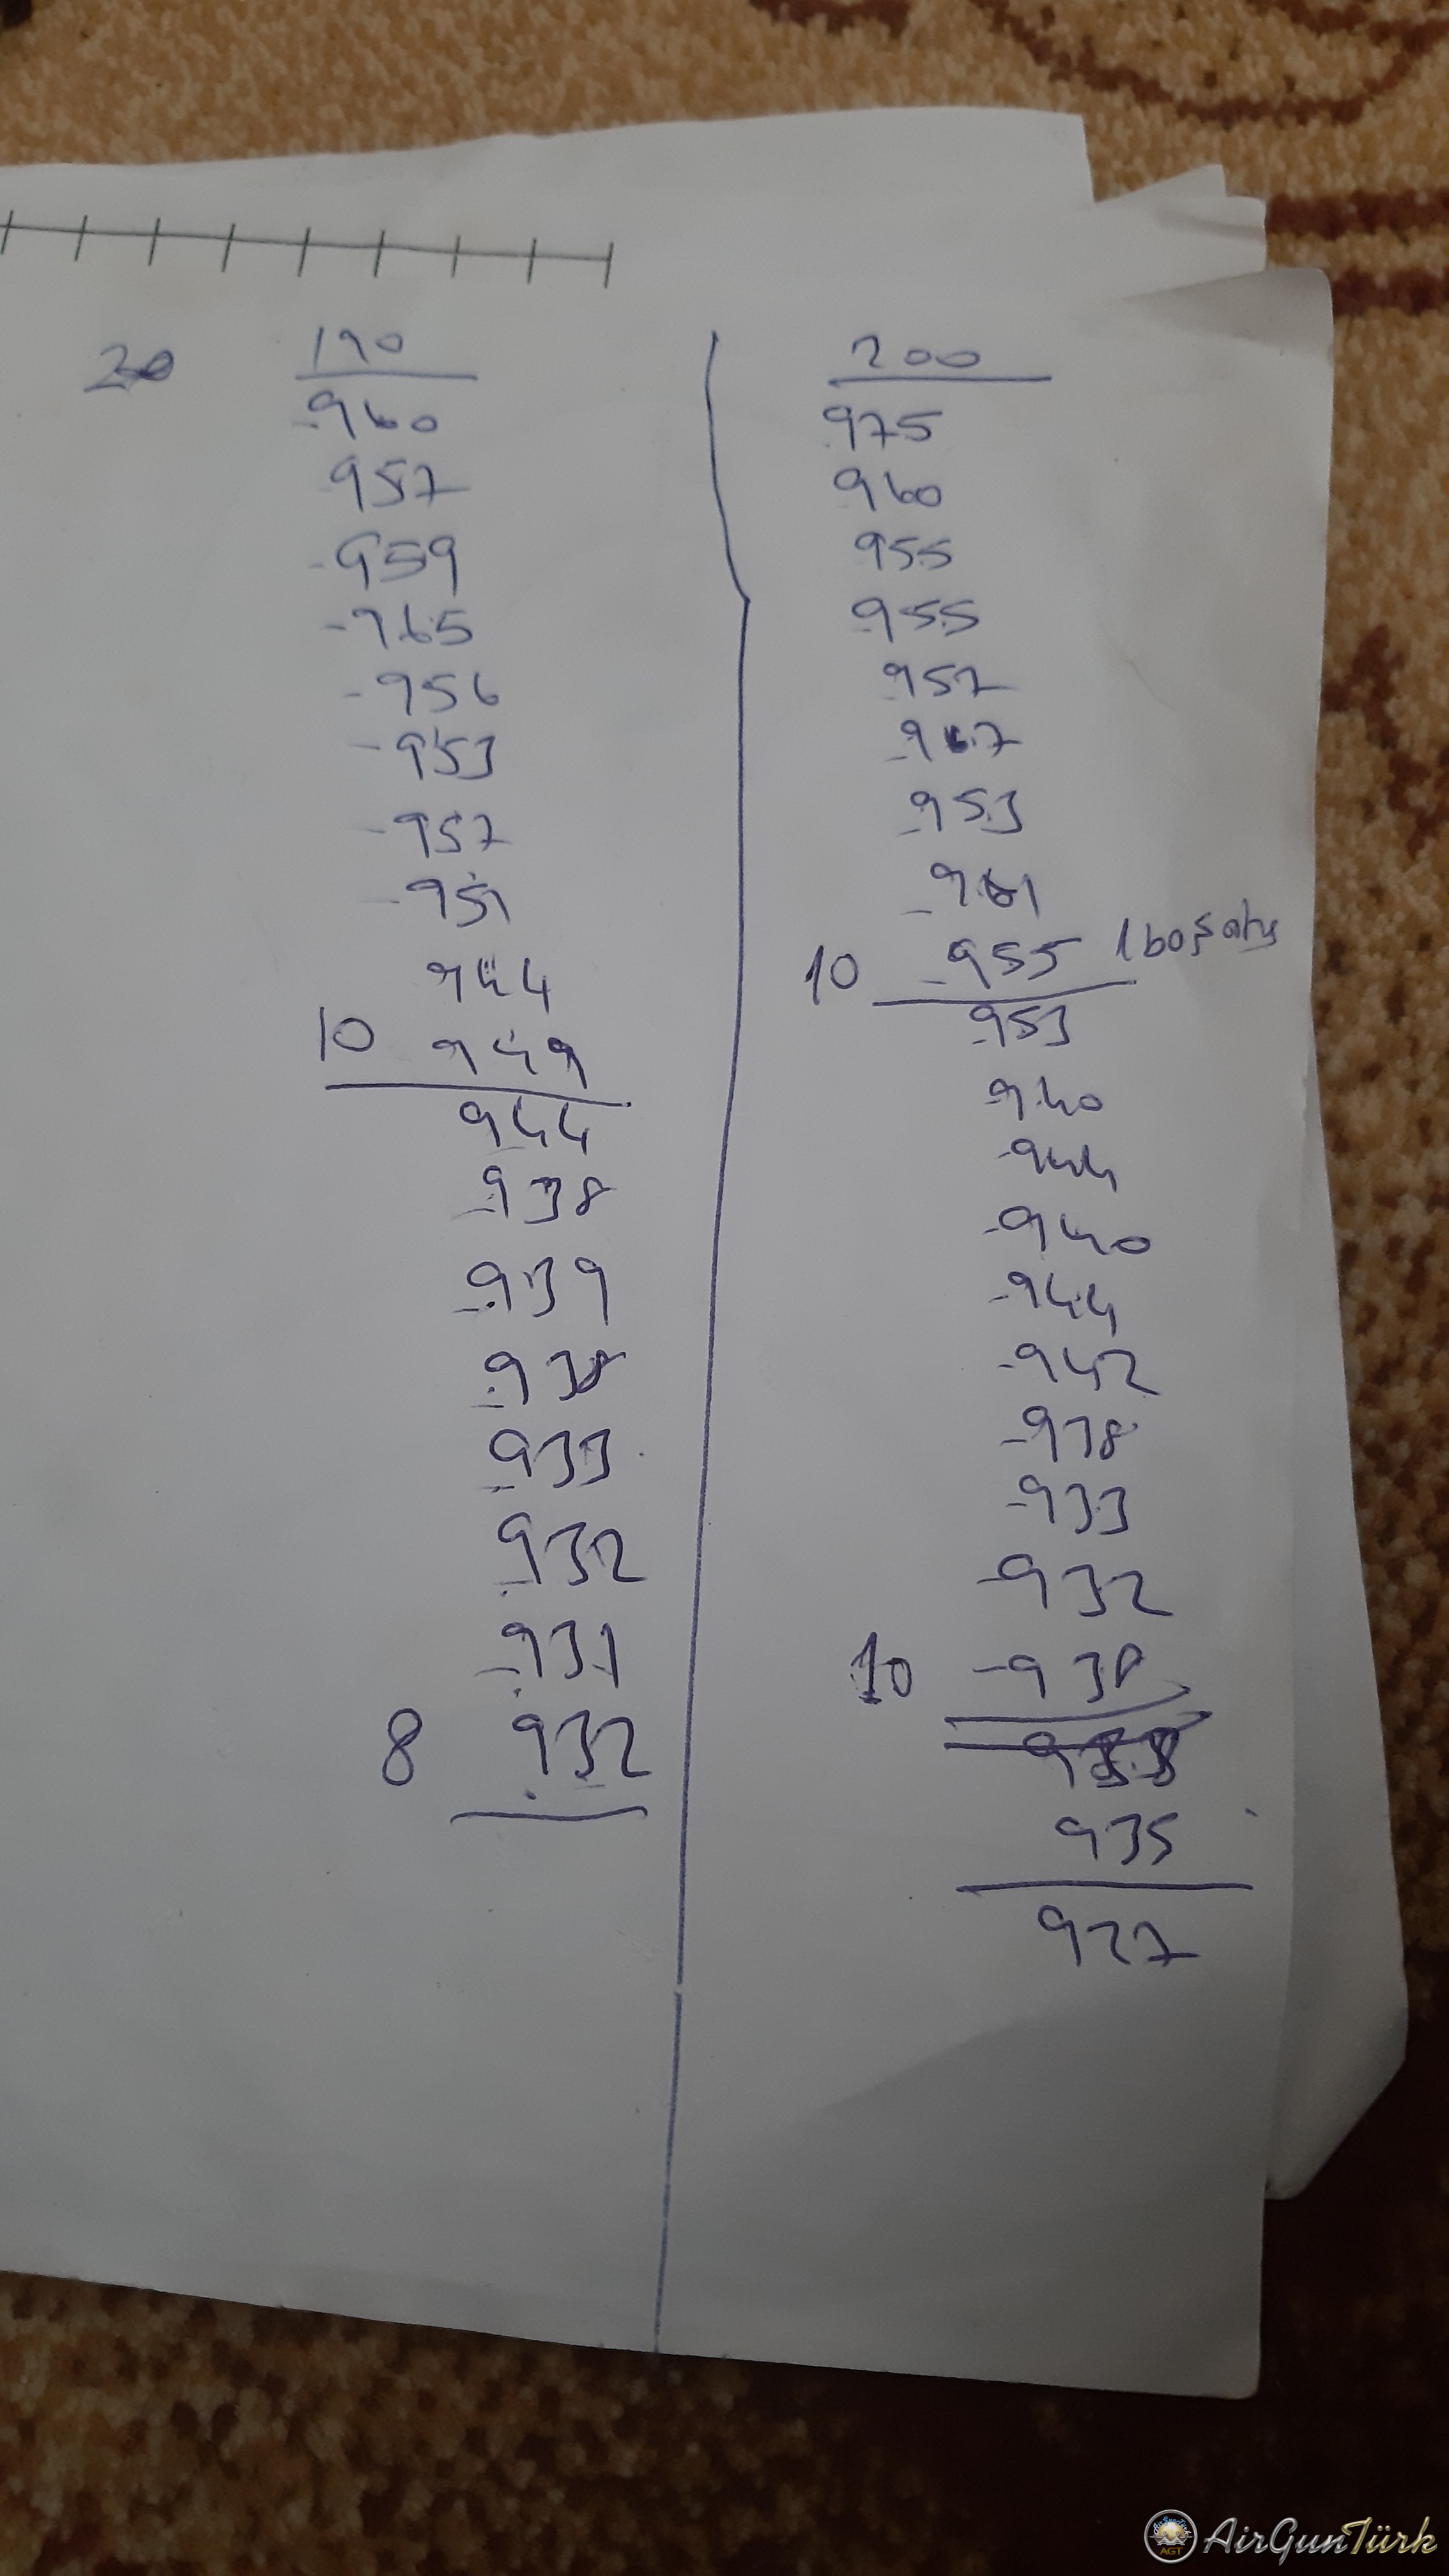 20
190
-960
957
-959
-965
-956
-953
-957
-951
944
10 949
944
-938
-939
-938
-933
-932
-931
8 932
200
975
960
955
955
957
-967
-953
-961
10 -955 1 boş atış
-953
940
-944
-940
-944
-942
-938
-933
-932
10 -938
935
927
AirGunTürk
AGT